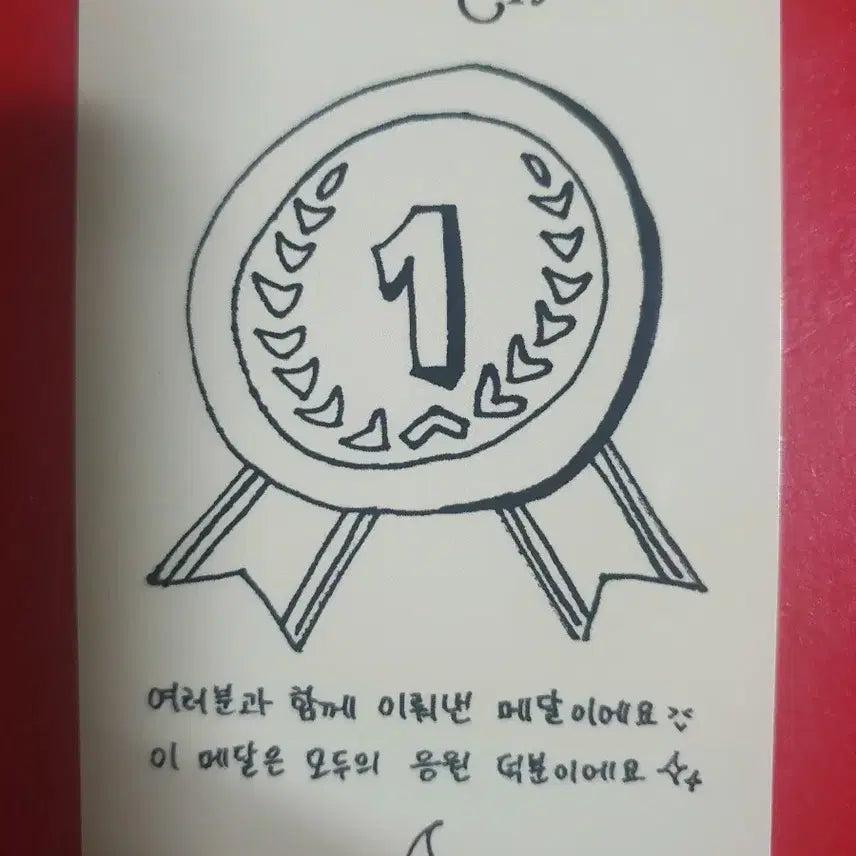 1
여러분과 함께 이뤄낸 메달이에요
이 메달은 모두의 응원 덕분이에요